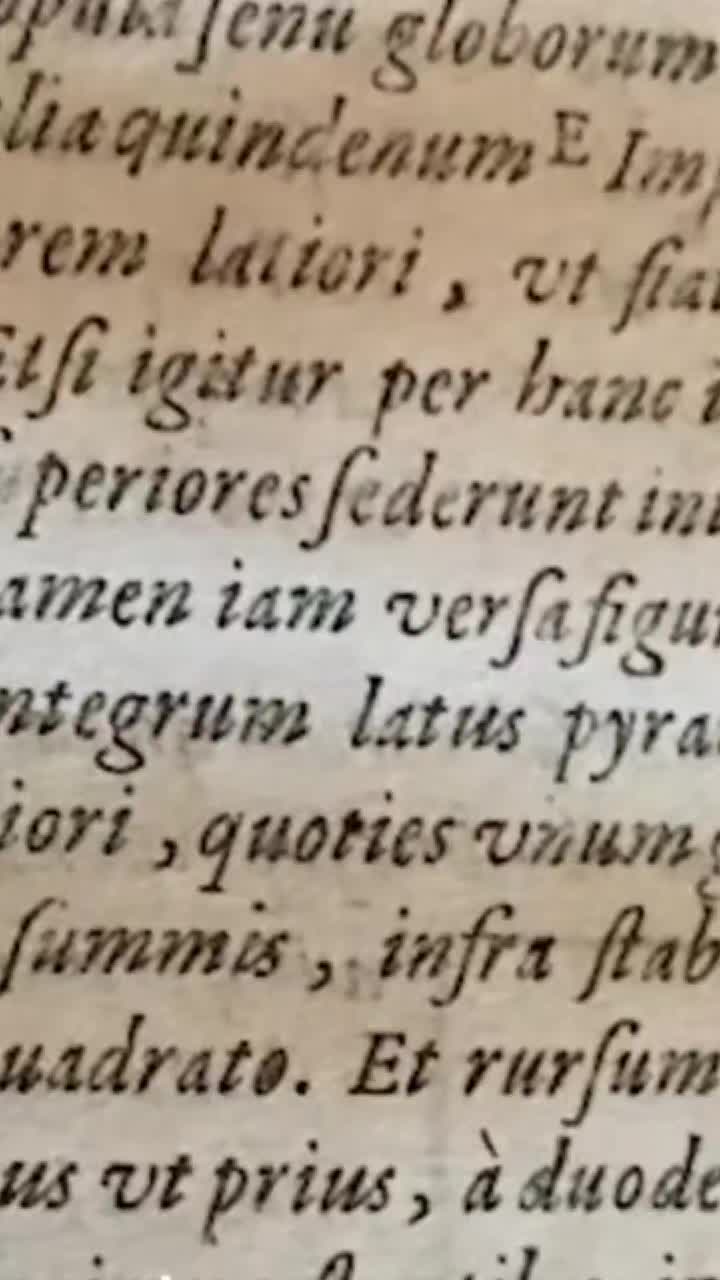 ſenu globorum
lia quindenum E Imp
rem latiori, vt fiat
itſi igitur per hanc i
periores ſederunt int
amen iam verſa figur
ntegrum latus pyra
iori, quoties vnum g
ſummis, infra ſtab
uadrato. Et rurſum
us vt prius, à duode